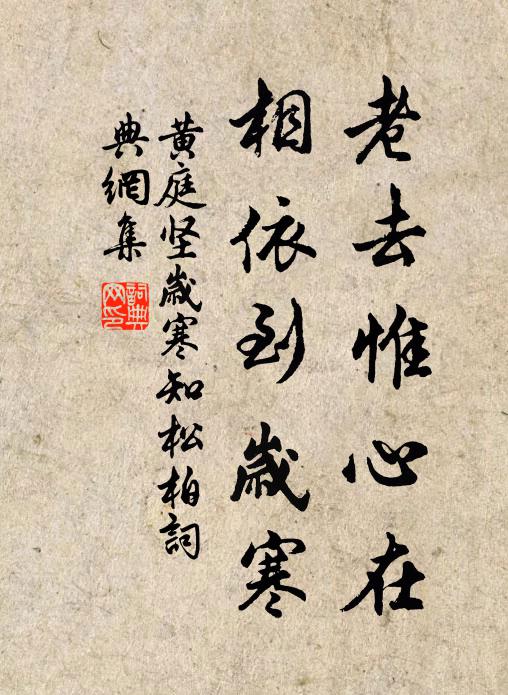 老去惟心在
相依到歲寒
黄庭坚歲寒知松柏詞
典網集
詞典網印